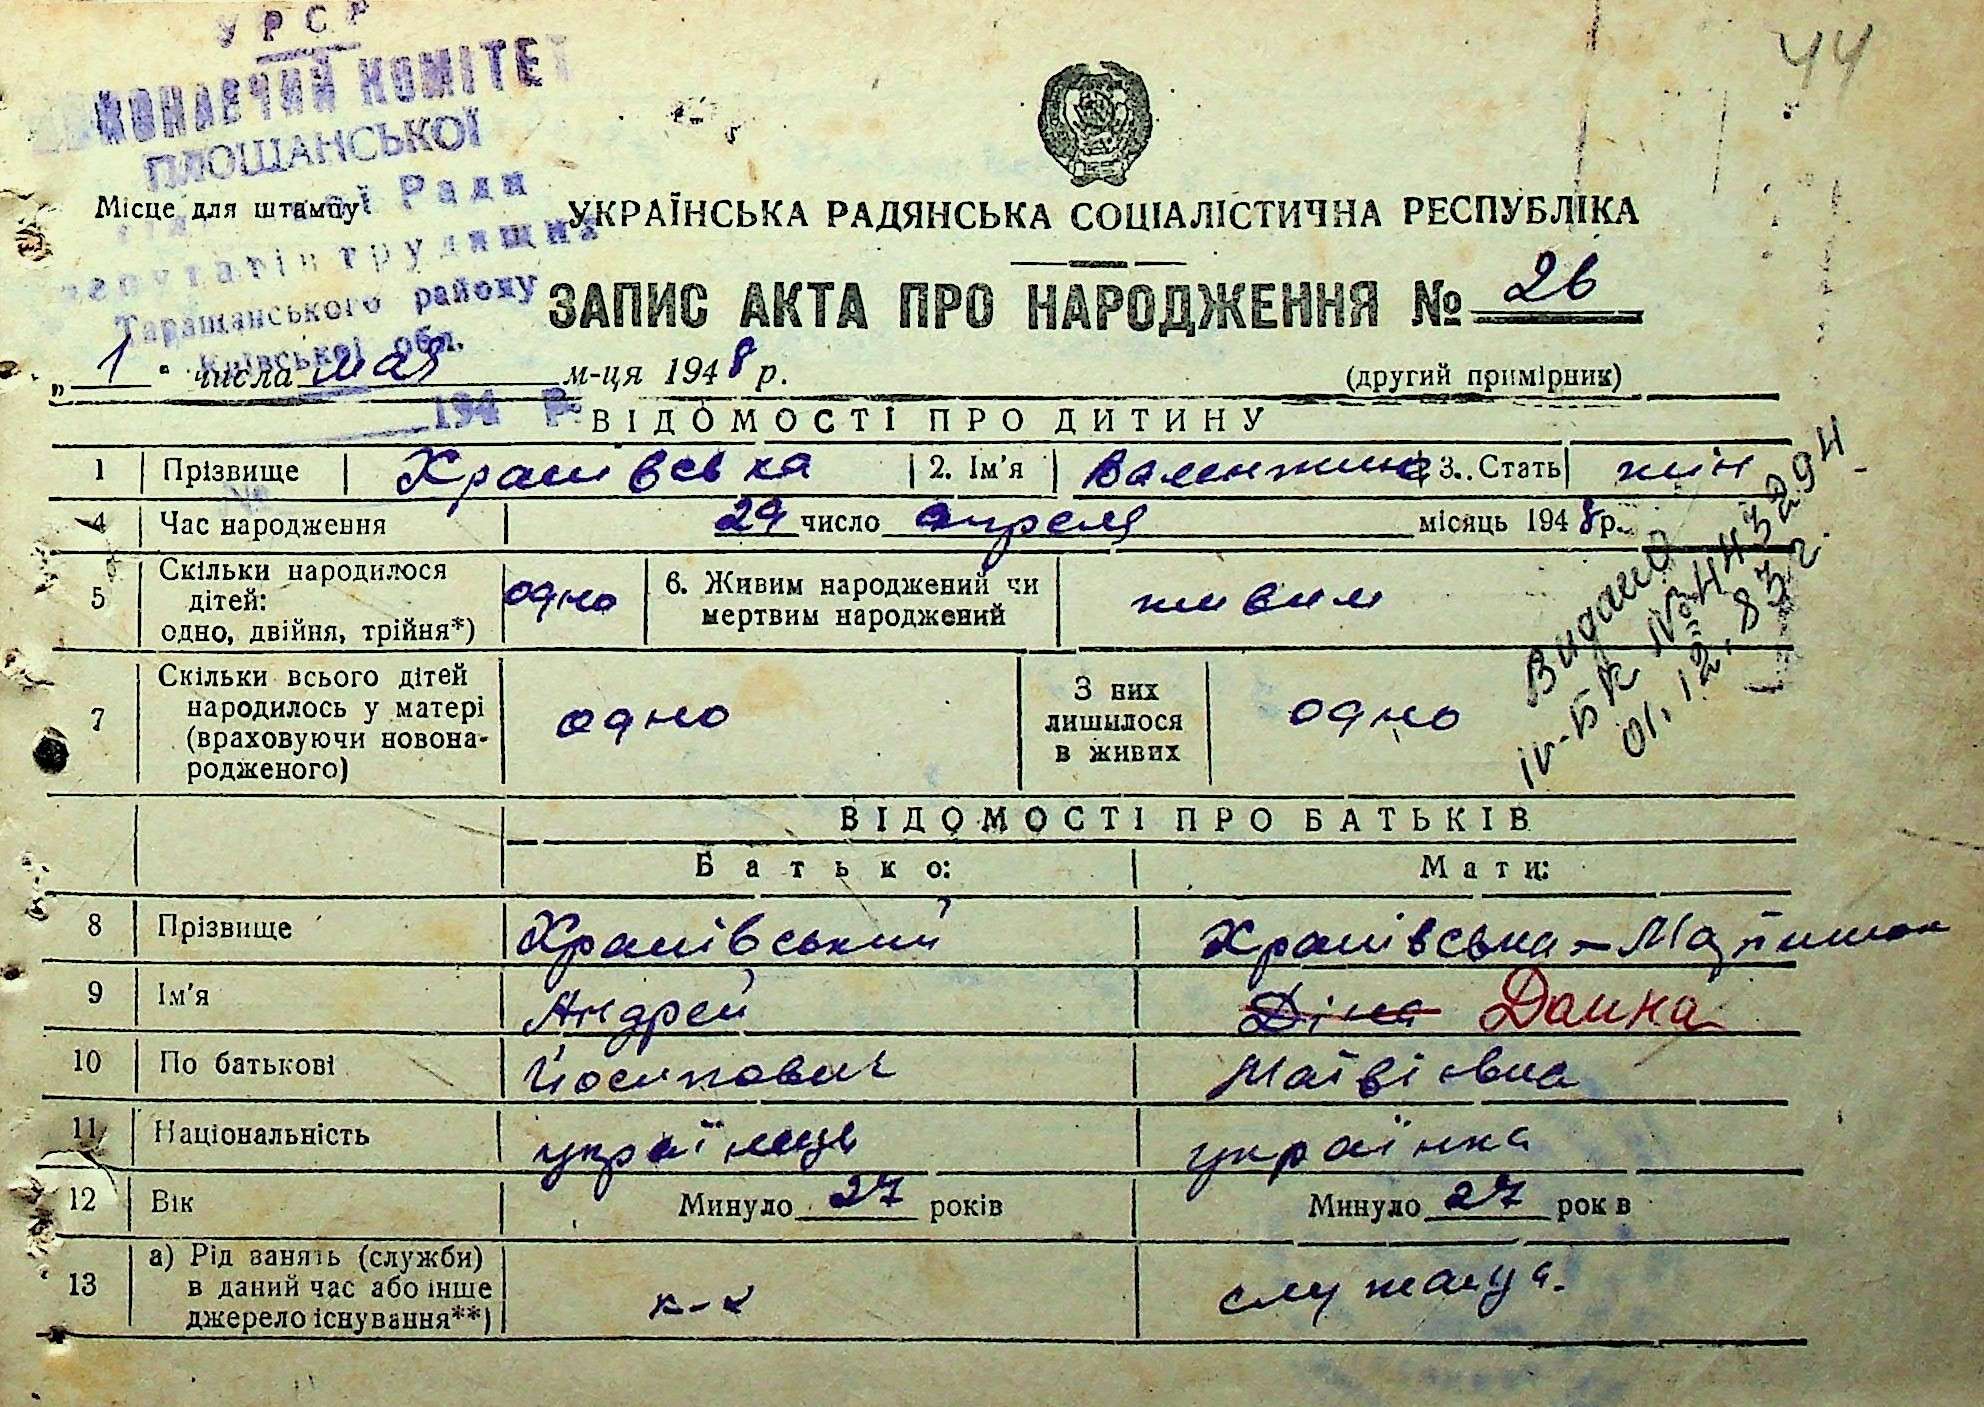 44
УРСР
ВИКОНАВЧИЙ КОМІТЕТ
ПЛОЩАНСЬКОЇ
Ради
депутатів трудящих
Таращанського району
Київської обл.
194 р.
Місце для штампу
УКРАЇНСЬКА РАДЯНСЬКА СОЦІАЛІСТИЧНА РЕСПУБЛІКА
ЗАПИС АКТА ПРО НАРОДЖЕННЯ № 26
„1" числа мая м-ця 1948 р.
(другий примірник)
ВІДОМОСТІ ПРО ДИТИНУ
1 Прізвище Храпівська 2. Ім'я Валентина 3. Стать жін
4 Час народження 29 число апреля місяць 1948 р.
5 Скільки народилося дітей: одно, двійня, трійня*) одно 6. Живим народжений чи мертвим народжений живим
7 Скільки всього дітей народилось у матері (враховуючи новонародженого) одно З них лишилося в живих одно
Видано
IV-БК № 443294
01.12.83 г.
ВІДОМОСТІ ПРО БАТЬКІВ
Батько: Мати:
8 Прізвище Храпівський Храпівська-
9 Ім'я Андрей Діна Домна
10 По батькові Йосипович Матвіівна
11 Національність українць українка
12 Вік Минуло 27 років Минуло 27 років
13 а) Рід занять (служби) в даний час або інше джерело існування**) к-к служаща.